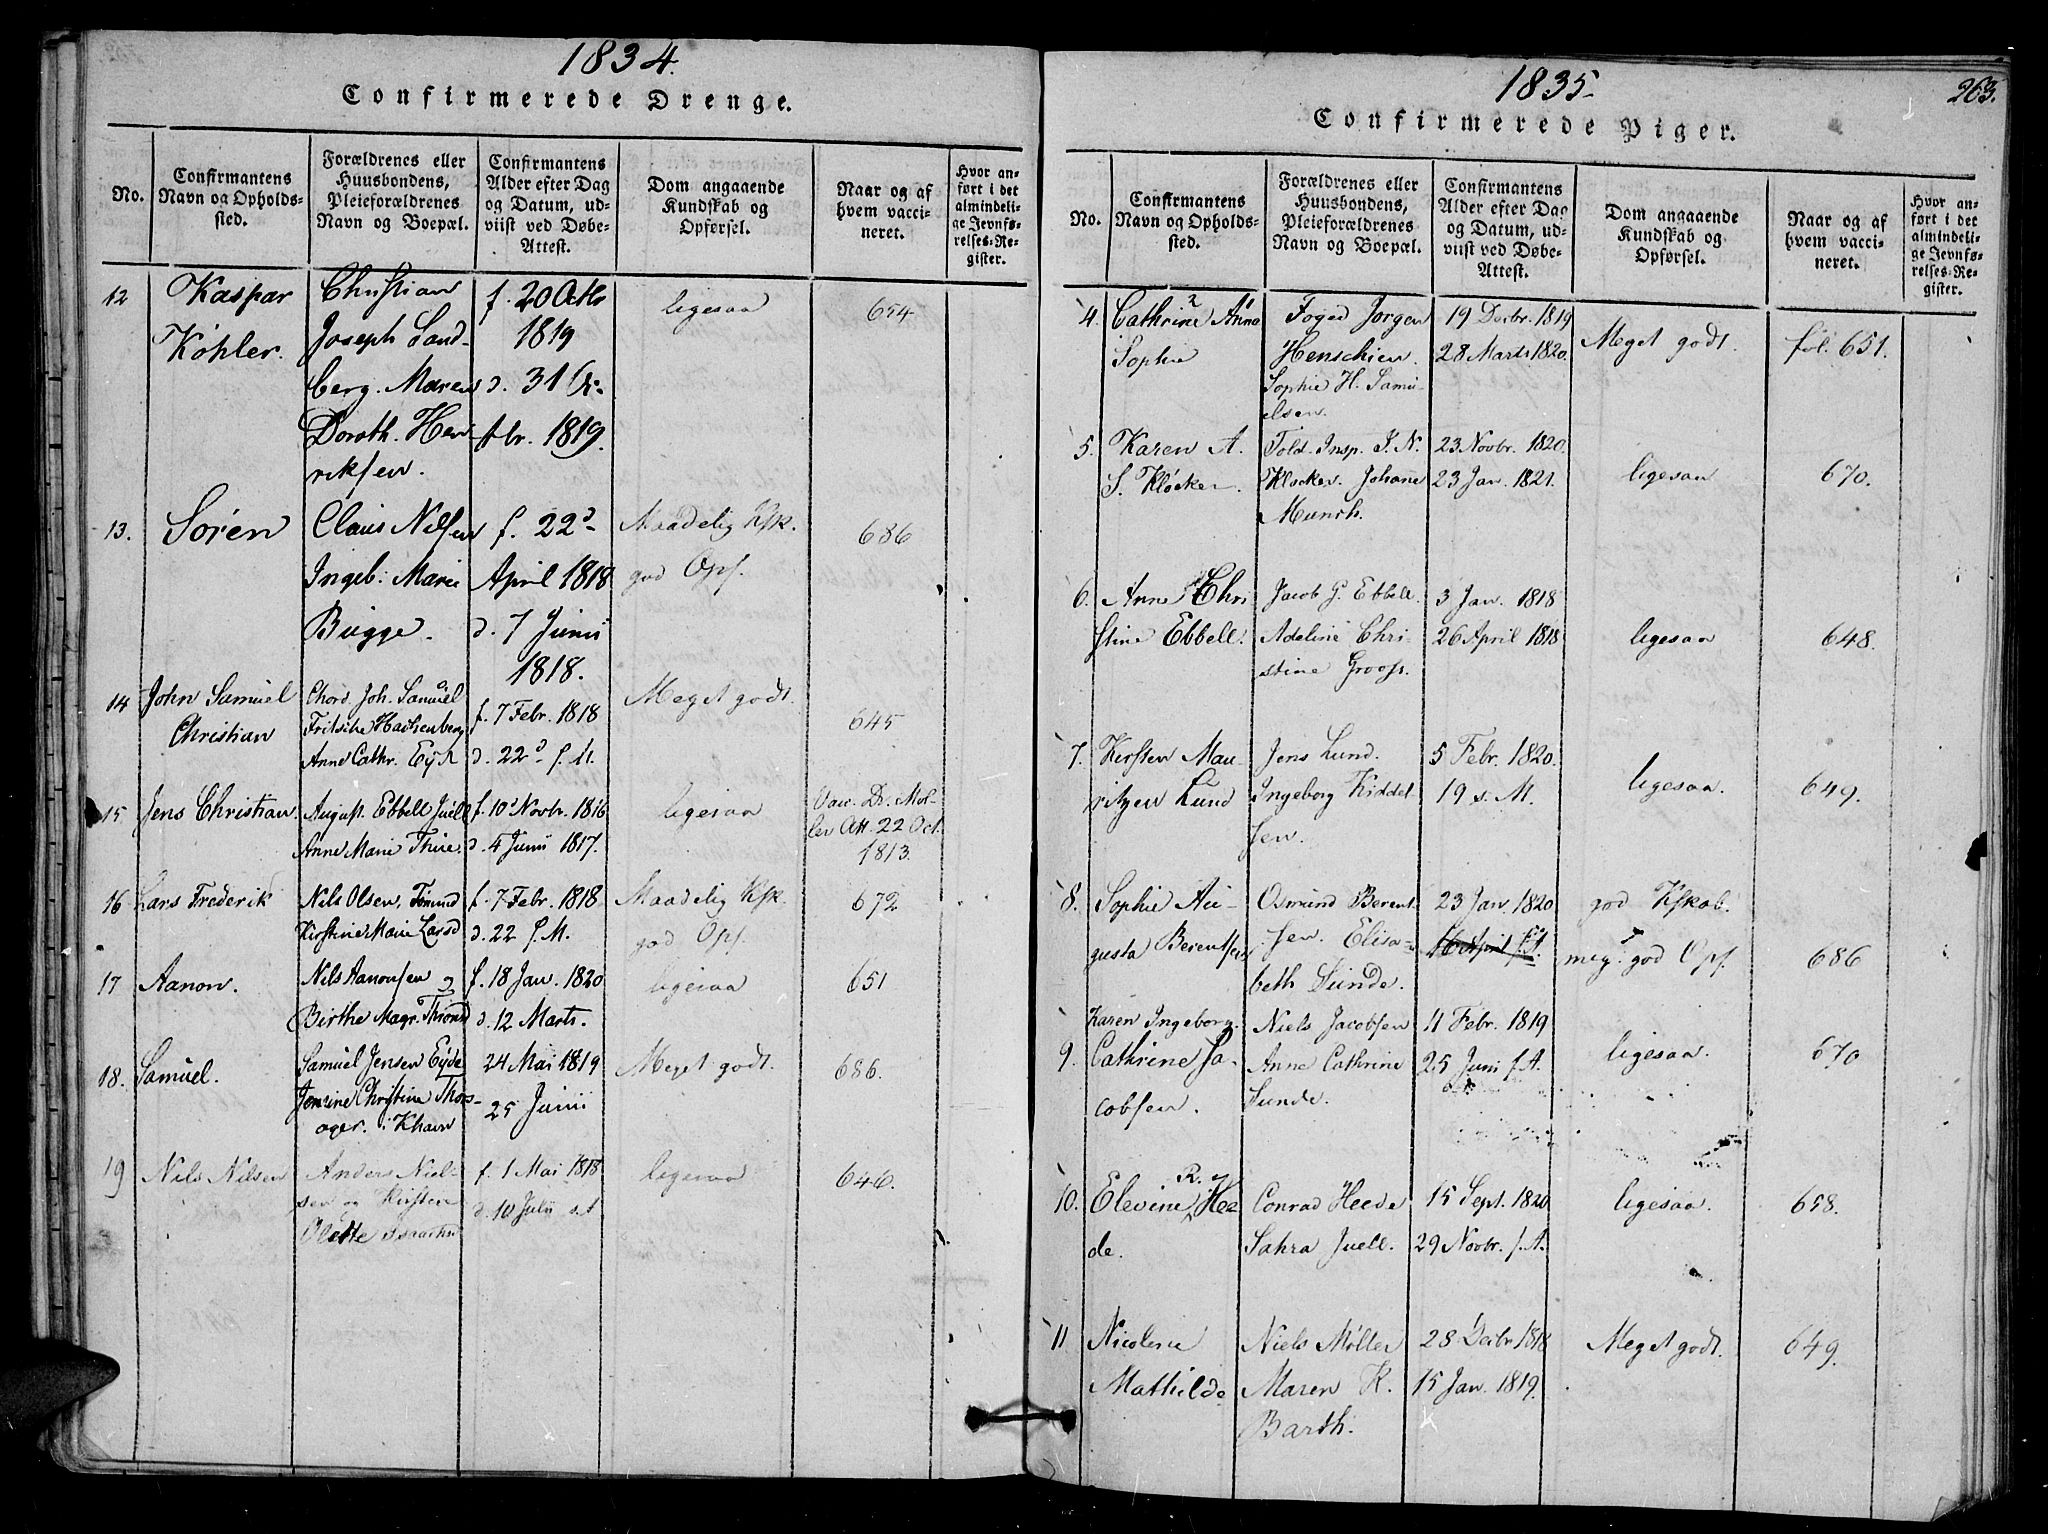 1834.
Confirmerede Drenge.
No.
Confirmantens
Navn og Opholds-
sted.
Forældrenes eller
Huusbondens,
Pleieforældrenes
Navn og Boepæl.
Confirmantens
Alder efter Dag
og Datum, ud-
viist ved Døbe-
Attest.
Dom angaaende
Kundskab og
Opførsel.
Naar og af
hvem vacci-
neret.
Hvor an-
ført i det
almindeli-
ge Jevnfø-
relses-Re-
gister.
12
Kaspar
Köhler.
Christian
Joseph Sand-
berg. Maren
Doroth. Hen-
riksen.
f. 20 Octbr
1819
d. 31
1819.
ligesaa
654
13.
Sören
Claus Nilsen
Ingeb: Marie
Bugge.
f. 22d
April 1818
d. 7 Junii
1818.
Maadelig Ksk.
god Opf.
686
14
John Samuel
Christian
Chord. Joh. Samuel
Fritsche Hackenberg
Anne Cathr. Eyde
f. 7 Febr. 1818
d. 22d s. M.
Meget godt.
645
15
Jens Christian
August Ebbell Juell
Anne Marie Thue.
f. 10d Novbr. 1816
d. 4 Junii 1817.
ligesaa
Vac. Dr. Møl-
ler Att. 22 Oct.
1813.
16
Lars Frederik
Nils Olsen,
Kirstine Marie Larsd
f. 7 Febr. 1818
d. 22 s. M.
Maadelig Ksk
god Opf.
672
17
Aanon.
Nils Aanonsen og
Birthe Magr. Thiorsd
f. 18 Jan. 1820
d. 12 Marts.
ligesaa
651
18.
Samuel.
Samuel Jensen Eyde
Christine Mos-
ager. i Khavn
24 Mai 1819
25 Junii
Meget godt.
686.
19
Nils Nilsen
Anders Niel-
sen og Kirstine
Olette
f. 1 Mai 1818
d. 10 Julii s. A
ligesaa
646.
1835
263.
Confirmerede Piger.
No.
Confirmantens
Navn og Opholds-
sted.
Forældrenes eller
Huusbondens,
Pleieforældrenes
Navn og Boepæl.
Confirmantens
Alder efter Dag
og Datum, ud-
viist ved Døbe-
Attest.
Dom angaaende
Kundskab og
Opførsel.
Naar og af
hvem vacci-
neret.
Hvor an-
ført i det
almindeli-
ge Jevnfø-
relses-Re-
gister.
4.
Cathrine Anna
Sophie
Foged Jørgen
Henschien.
Sophie H. Samu-
elsen.
19 Decbr. 1819
28 Marts 1820.
Meget godt.
fol. 651.
5.
Karen A.
S. Kløcker.
Told. Insp. P. N.
Klocker. Johane
Munch.
23 Novbr. 1820.
23 Jan. 1821.
ligesaa
670.
6.
Anne Chri
stine Ebbell.
Jacob G. Ebbell.
Adeline Chri-
stine Groos.
3 Jan. 1818
26 April 1818
ligesaa
648.
7.
Kirsten Mau
ritzen Lund
Jens Lund.
Ingeborg Kiddel
sen.
5 Febr. 1820.
19 s. M.
ligesaa
649.
8.
Sophie Au-
gusta Berentsen
Osmund Berent
sen. Elisa-
beth Sunde.
23 Jan. 1820
16 April s. A.
god Kskab.
meg. god Opf.
686
9.
Karen Ingeborg
Cathrine Ja-
cobsen.
Niels Jacobsen
Anne Cathrine
Sunde.
11 Febr. 1819
25 Juni s. A.
ligesaa.
670
10.
R.
Elevine Hee
de.
Conrad Heede
Sahra Juell.
15 Sept. 1820
29 Novbr. s. A.
ligesaa.
658.
11
Nicoline
Mathilde
Niels Møller
Maren K.
Barth.
28 Decbr 1818
15 Jan. 1819.
Meget godt.
649.